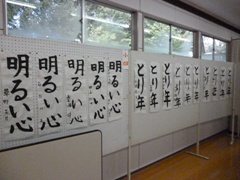 明るい心
明るい心
明るい心
明るい心
明るい心
とり年
とり年
とり年
とり年
とり年
とり年
とり年
とり年
とり年